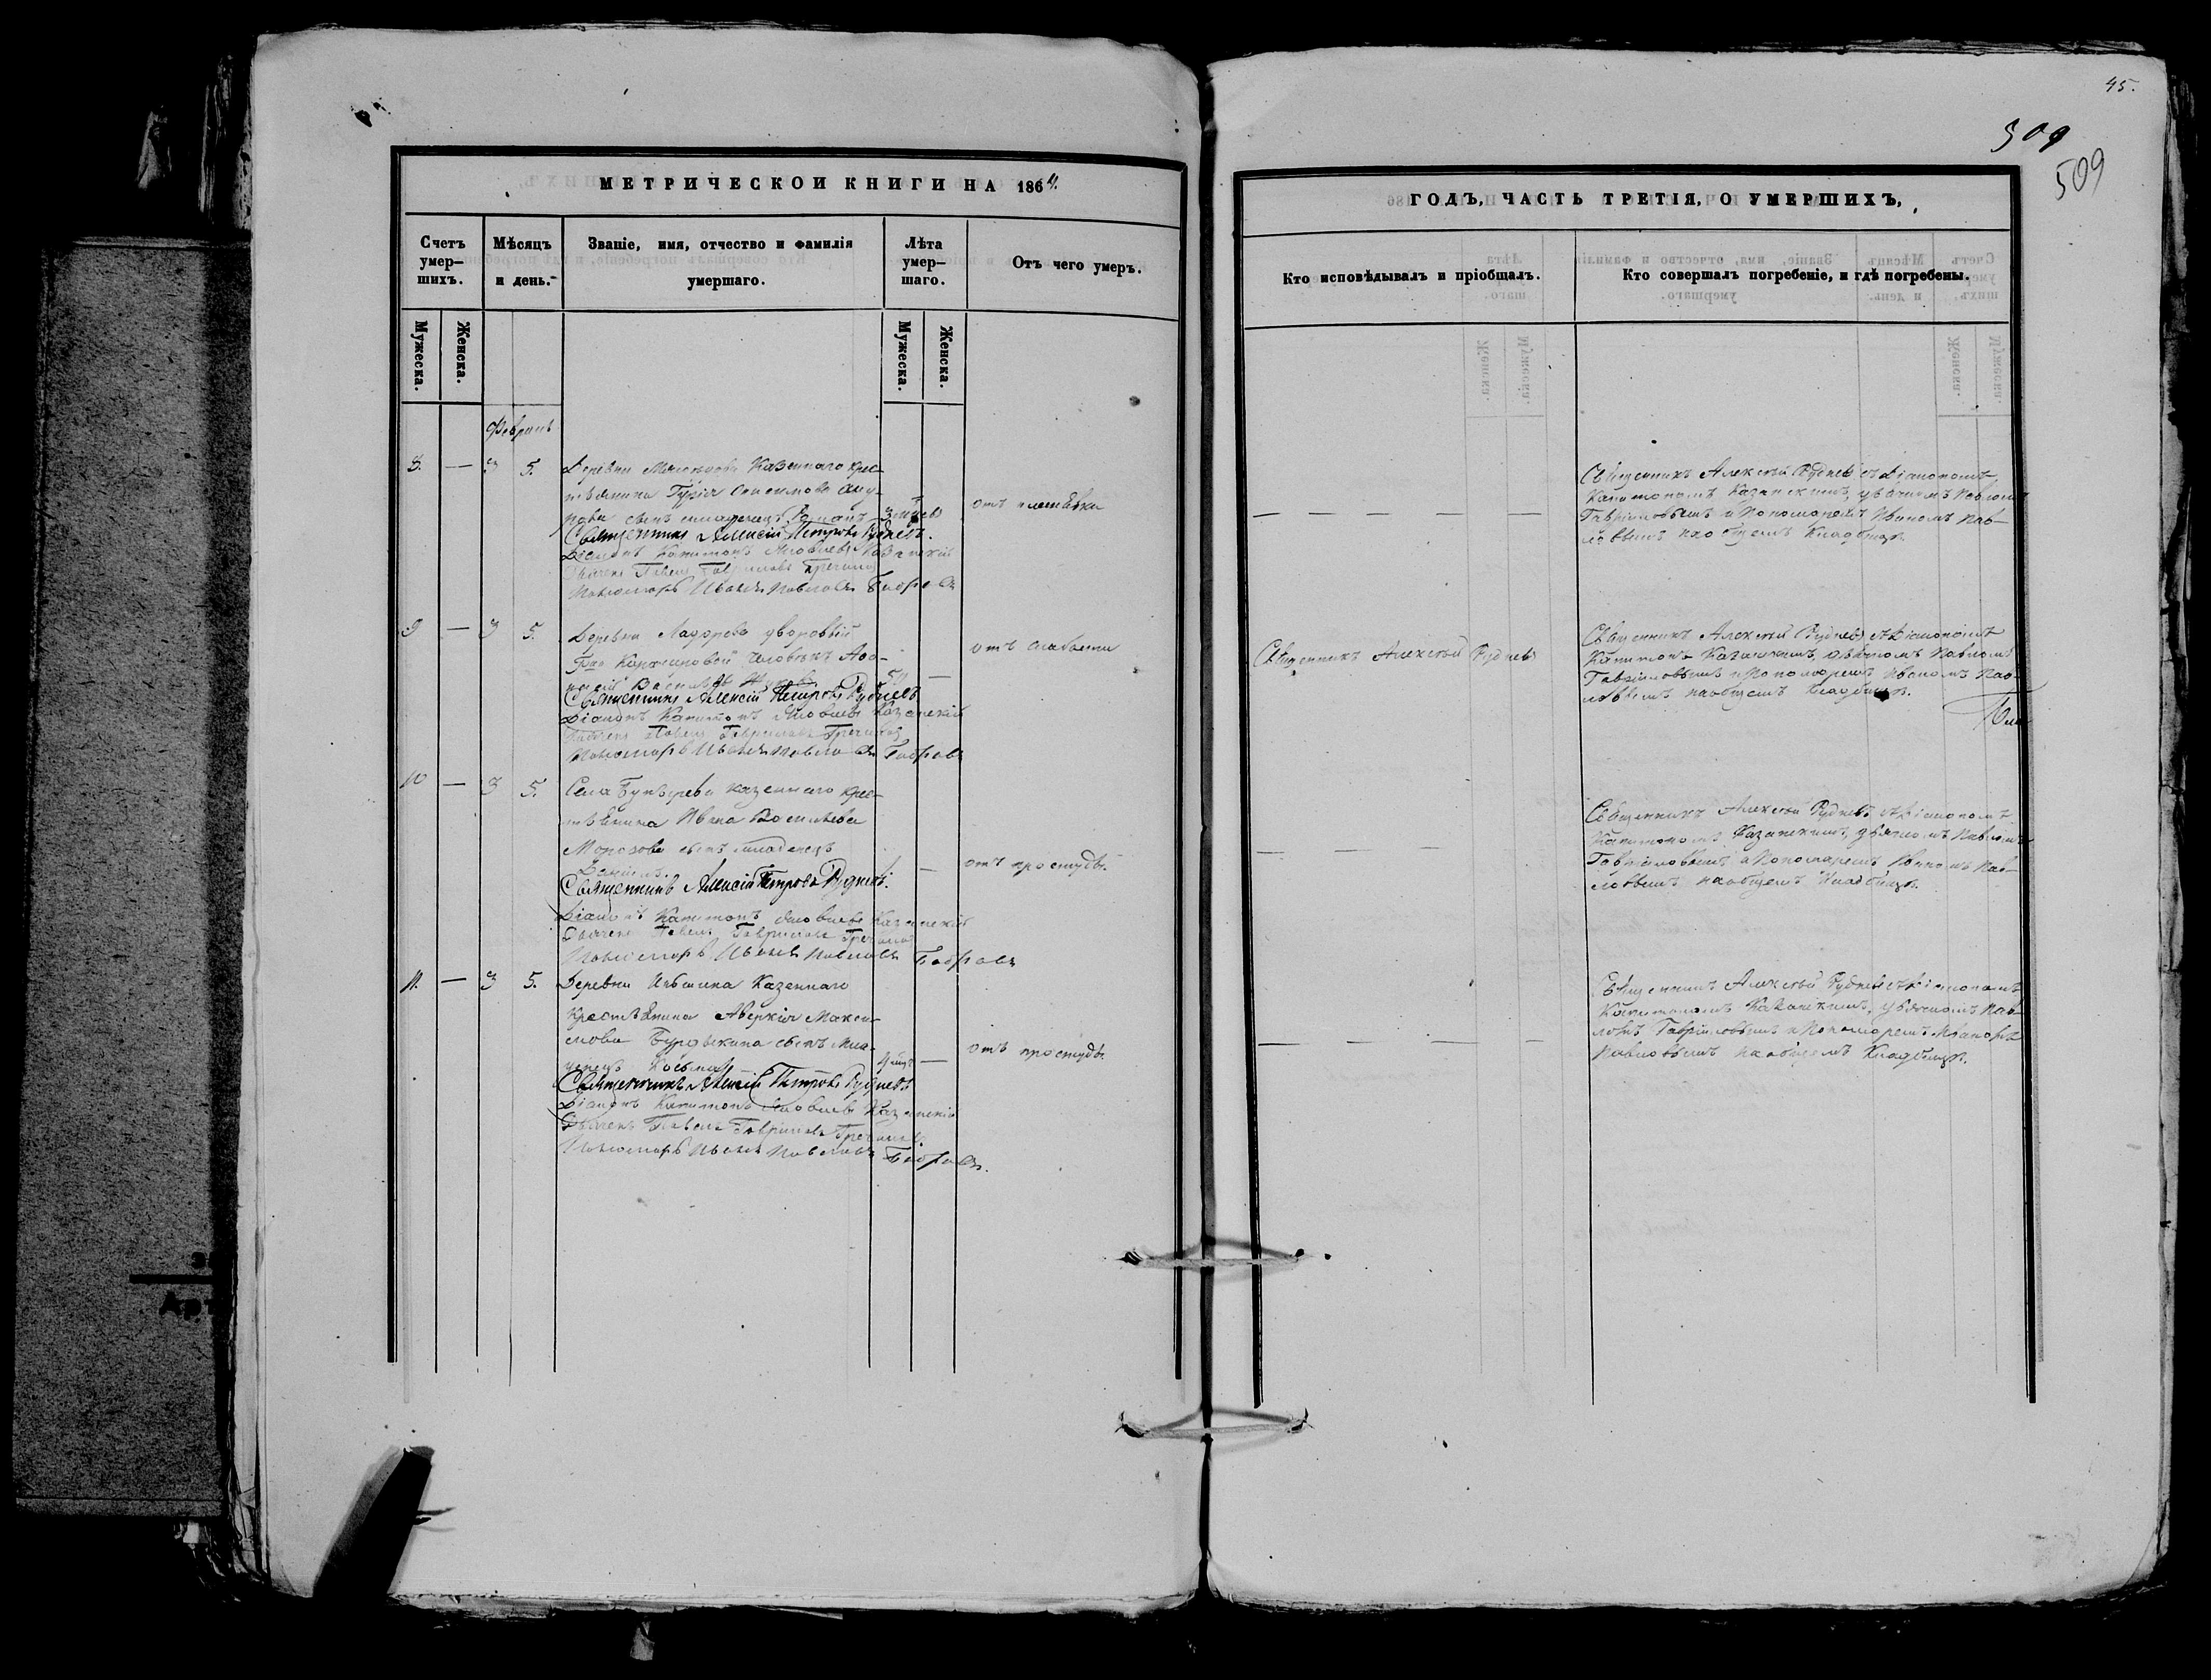 45.
509
509
МЕТРИЧЕСКОЙ КНИГИ НА 1864.
Счетъ умер-
шихъ.
Мѣсяцъ
и день.
Званіе, имя, отчество и фамилія
умершаго.
Лѣта
умер-
шаго.
Отъ чего умеръ.
Мужеска.
Женска.
Мужеска.
Женска.
Февраль
8. — 3 5. Деревни Казеннаго крес-
тьянина Гурія
сынъ младенецъ Романъ
отъ
Священникъ Алексій Петровъ Рудневъ.
Діаконъ Капитонъ Яковлевъ Казанскій
Дьячекъ Павелъ Гавриловъ Гречановъ
Пономарь Иванъ Павловъ Бобровъ
9 — 3 5. Деревни дворовый
человѣкъ
50 —
отъ слабости
Священникъ Алексій Петровъ Рудневъ
Діаконъ Капитонъ Яковлевъ Казанскій
Дьячекъ Павелъ Гавриловъ
Пономарь Иванъ Павловъ Бобровъ
10 — 3 5. Села Бунырева казеннаго крес-
тьянина Ивана Васильева
Морозова сынъ младенецъ
отъ простуды
Священникъ Алексій Петровъ Рудневъ.
Діаконъ Капитонъ Яковлевъ Казанскій
Дьячекъ Павелъ Гавриловъ
Пономарь Иванъ Павловъ Бобровъ
11. — 3 5. Деревни Казеннаго
крестьянина Аверкія Макси-
мова сынъ мла-
денецъ Косьма
отъ простуды
Священникъ Алексій Петровъ Рудневъ
Діаконъ Капитонъ Яковлевъ Казанскій
Дьячекъ Павелъ Гавриловъ
Пономарь Иванъ Павловъ Бобровъ.
ГОДЪ, ЧАСТЬ ТРЕТІЯ, О УМЕРШИХЪ,
Кто исповѣдывалъ и пріобщалъ.
Кто совершалъ погребеніе, и гдѣ погребены.
Священникъ Алексѣй Рудневъ съ Діакономъ
Капитономъ Казанскимъ, дьячкомъ Павломъ
Гавриловымъ и Пономаремъ Иваномъ Пав-
ловымъ на общемъ Кладбищѣ.
Священникъ Алексѣй Рудневъ
Священникъ Алексѣй Рудневъ съ Діакономъ
Капитономъ Казанскимъ, дьячкомъ Павломъ
Гавриловымъ и Пономаремъ Иваномъ Пав-
ловымъ на общемъ Кладбищѣ.
Священникъ Алексѣй Рудневъ съ Діакономъ
Капитономъ Казанскимъ, дьячкомъ Павломъ
Гавриловымъ и Пономаремъ Иваномъ Пав-
ловымъ на общемъ Кладбищѣ.
Священникъ Алексѣй Рудневъ съ Діакономъ
Капитономъ Казанскимъ, дьячкомъ Пав-
ломъ Гавриловымъ и Пономаремъ Иваномъ
Павловымъ на общемъ Кладбищѣ.